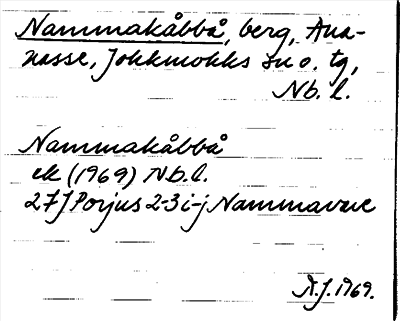 Nammakåbbå, berg, Ana-
nasse, Jokkmokks sn o. tg,
Nb. l.
Nammakåbbå
ek (1969) Nb. l.
27J Porjus 2-3 i-j Nammavare
A.J. 1969.